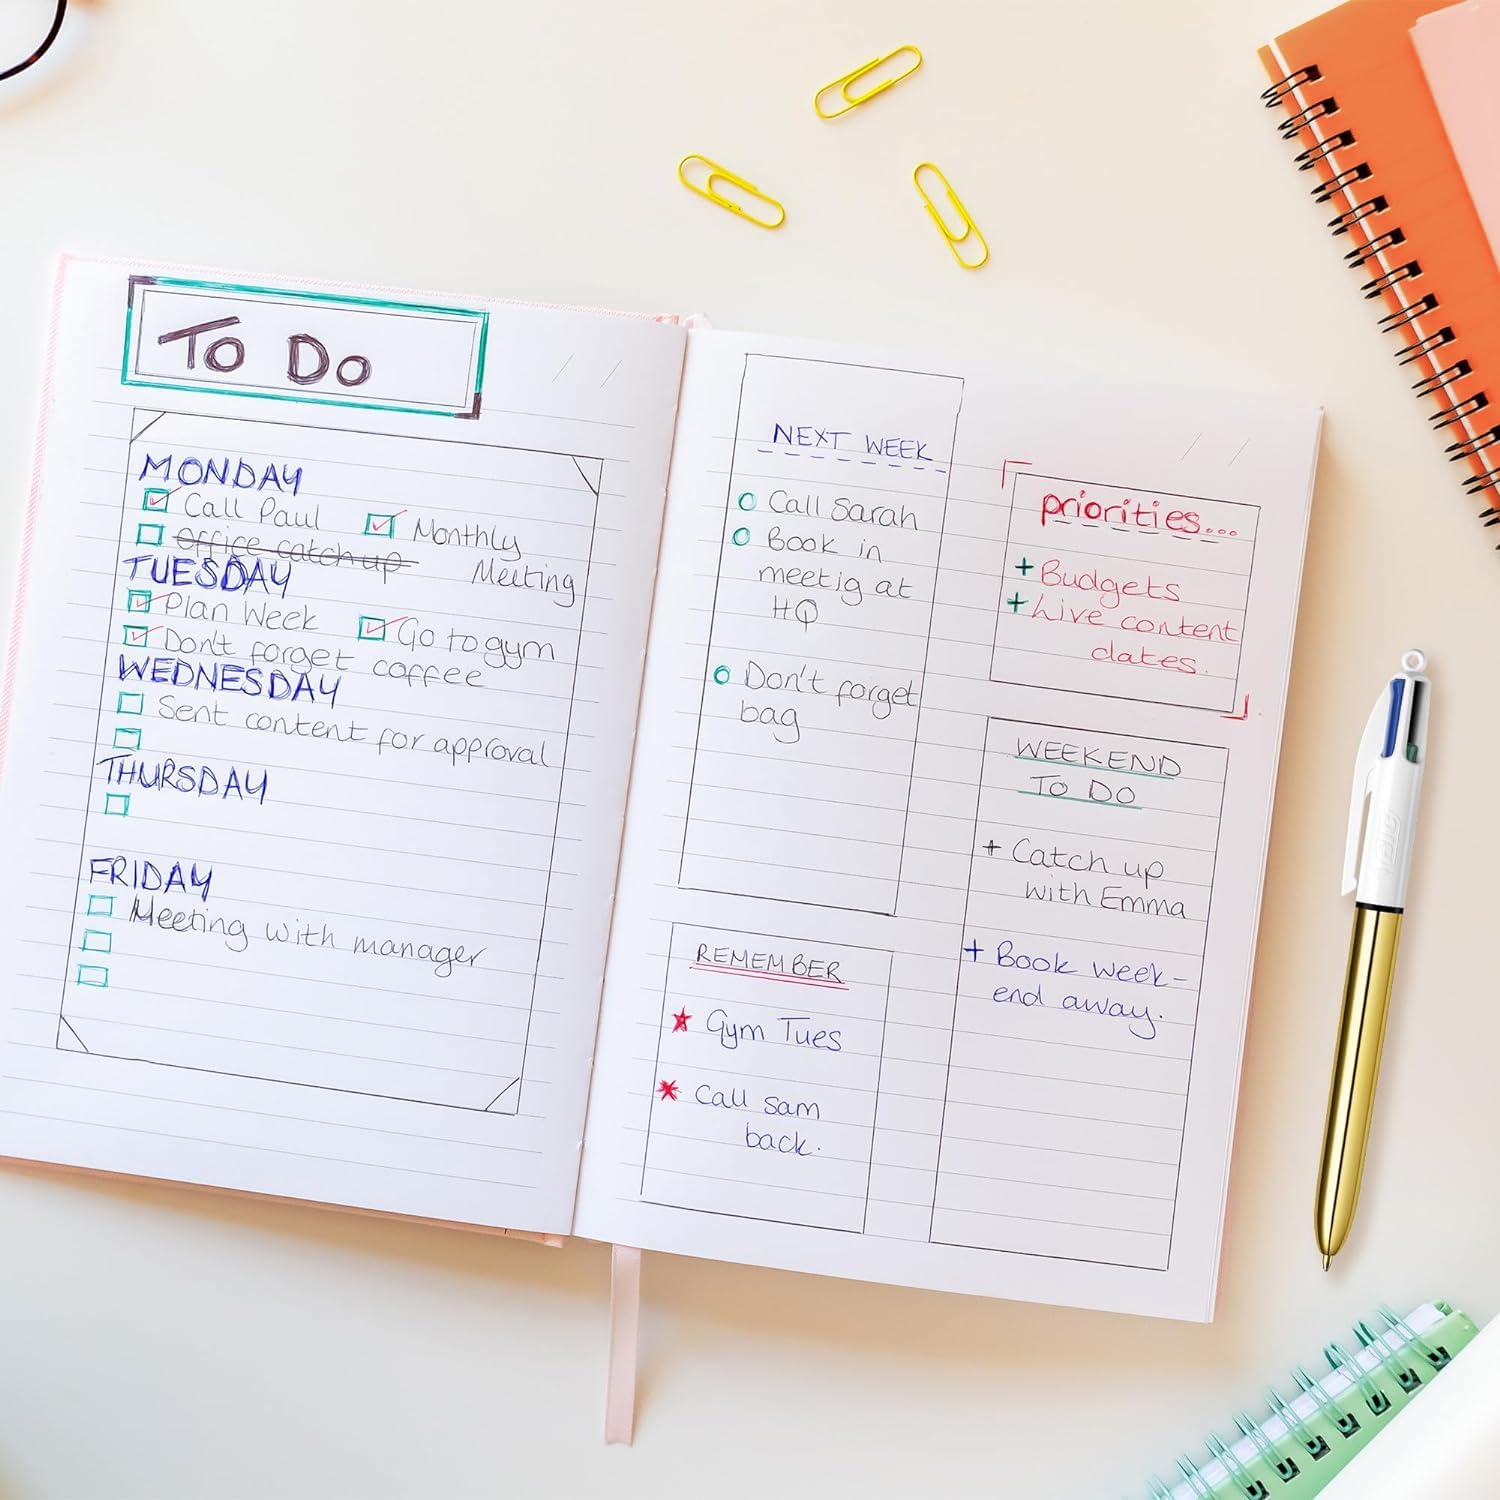 To Do
MONDAY
Call Paul
Monthly
Meeting
Office catch up
TUESDAY
Plan Week
Go to gym
Don't forget coffee
WEDNESDAY
Sent content for approval
THURSDAY
FRIDAY
Meeting with manager
NEXT WEEK
Call Sarah
Book in
meetig at
HQ
Don't forget
bag
REMEMBER
Gym Tues
Call sam
back.
priorities...
+ Budgets
+ Live content
dates.
WEEKEND
TO DO
+ Catch up
with Emma
+ Book week-
end away.
BIC